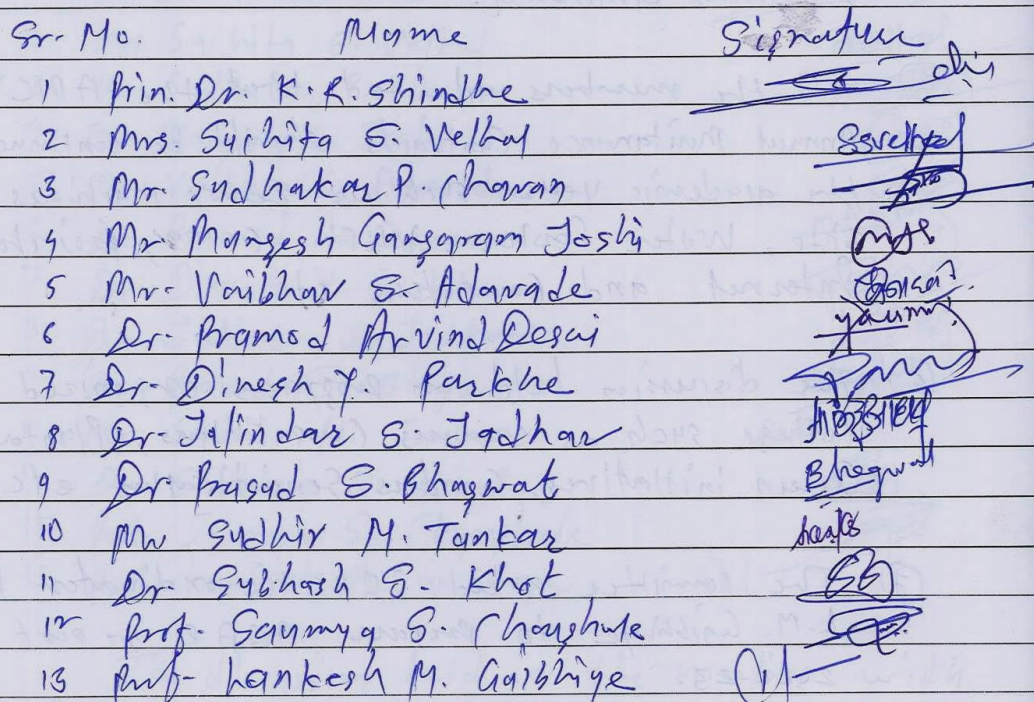 Sr. No. Name Signature
1 Prin. Dr. K. R. Shindhe
2 Mrs. Suchita S. Velhal Ssvelhal
3 Mr. Sudhakar P. Chavan
4 Mr. Mangesh Gangaram Joshi
5 Mr. Vaibhav S. Adavade
6 Dr. Pramod Arvind Desai
7 Dr. Dinesh Y. Parkhe
8 Dr. Jalindar S. Jadhav
9 Dr. Prasad S. Bhagwat Bhagwat
10 Mr Sudhir M. Tankar
11 Dr. Subhash S. Khot
12 Prof. Saumya S. Chaughule
13 Prof. Lankesh M. Gaibhiye